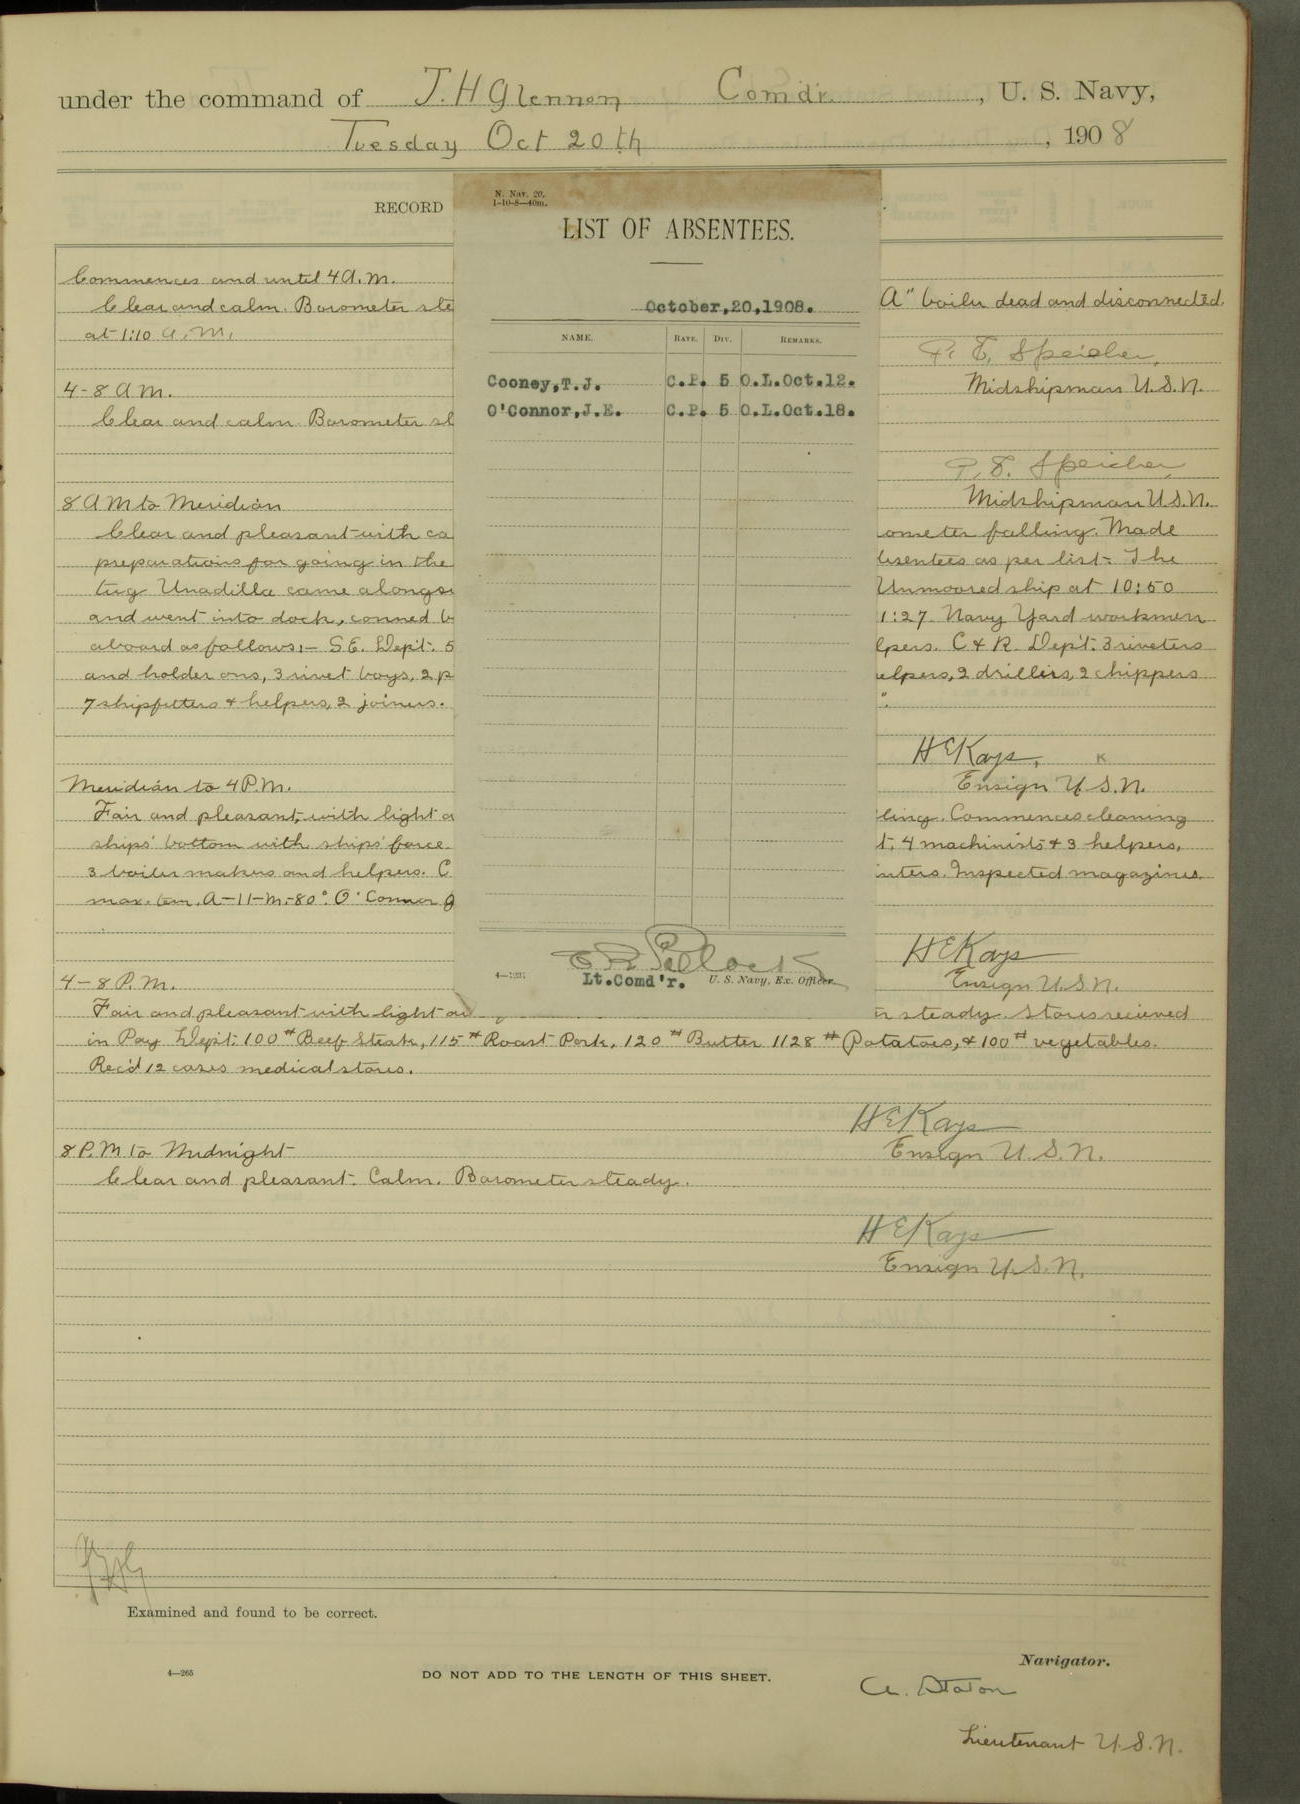 under the command of J. H Glennon Comdr. , U. S. Navy,
Tuesday Oct 20th , 1908
RECORD
Commences and until 4 A.m.
Clear and calm. Barometer ste
A" boiler dead and disconnected
at 1:10 a.m.
P. E. Speicher,
Midshipman U.S.N.
4-8 A M.
Clear and calm Barometer st
P. E. Speicher,
Midshipman U.S.N.
8 A M to Meridian
Clear and pleasant with ca
ometer falling. Made
preparations for going in the
bsentees as per list. The
tug Unadilla came alongsi
Unmoored ship at 10:50
and went into dock, conned b
1:27. Navy Yard workmen
aboard as follows:- S.E. Dept. 5
lpers. C & R. Dept. 3 riveters
and holder ons, 3 rivet boys, 2 p
elpers, 2 drillers, 2 chippers
7 shipfitters & helpers, 2 joiners.
H E Kays,
Ensign U.S.N.
Meridian to 4 P.m.
Fair and pleasant, with light a
ling. Commences cleaning
ships' bottom with ships' force.
t. 4 machinists & 3 helpers,
3 boiler makers and helpers. C
inters. Inspected magazines
max. tem. A-11-M.-80°. O'Connor
H E Kays
Ensign U.S.N.
4-8 P.m.
Fair and pleasant with light
steady. Stores recieved
in Pay Dept. 100# Beef Steak, 115# Roast Pork, 120# Butter 1128# Potatoes, & 100# vegetables.
Rec'd 12 cases medical stores.
H E Kays
Ensign U.S.N.
8 P.M to Midnight
Clear and pleasant. Calm. Barometer steady.
H E Kays
Ensign U.S.N.
Examined and found to be correct.
4—265
DO NOT ADD TO THE LENGTH OF THIS SHEET.
Navigator.
A. Staton
Lieutenant U.S.N.
N. Nav. 20.
1-10-8—40m.
LIST OF ABSENTEES.
October,20,1908.
NAME. RATE. DIV. REMARKS.
Cooney,T.J. C.P. 5 O.L.Oct.12.
O'Connor,J.E. C.P. 5 O.L.Oct.18.
Lt.Comd'r. U. S. Navy, Ex. Officer.